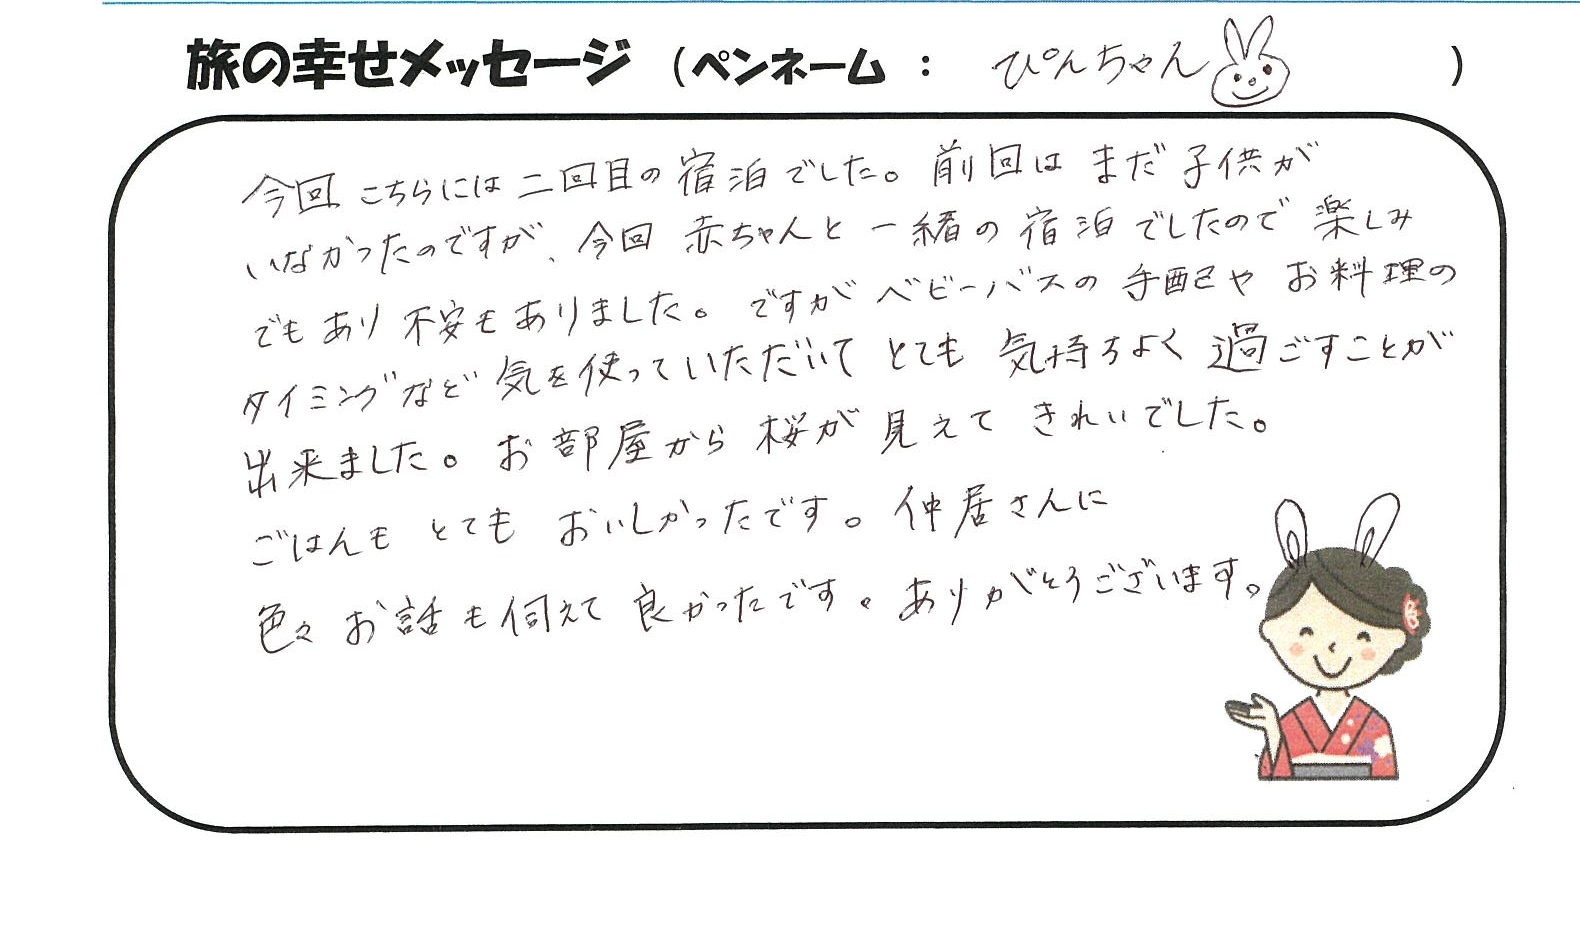 旅の幸せメッセージ （ペンネーム ： ぴんちゃん ）
今回 こちらには 二回目の 宿泊でした。前回は まだ 子供が
いなかったのですが、今回 赤ちゃんと 一緒の 宿泊でしたので 楽しみ
でもあり 不安もありました。ですが ベビーバスの 手配や お料理の
タイミングなど 気を使っていただいて とても 気持ちよく 過ごすことが
出来ました。お部屋から 桜が 見えて きれいでした。
ごはんも とても おいしかったです。仲居さんに
色々 お話も伺えて 良かったです。ありがとうございます。